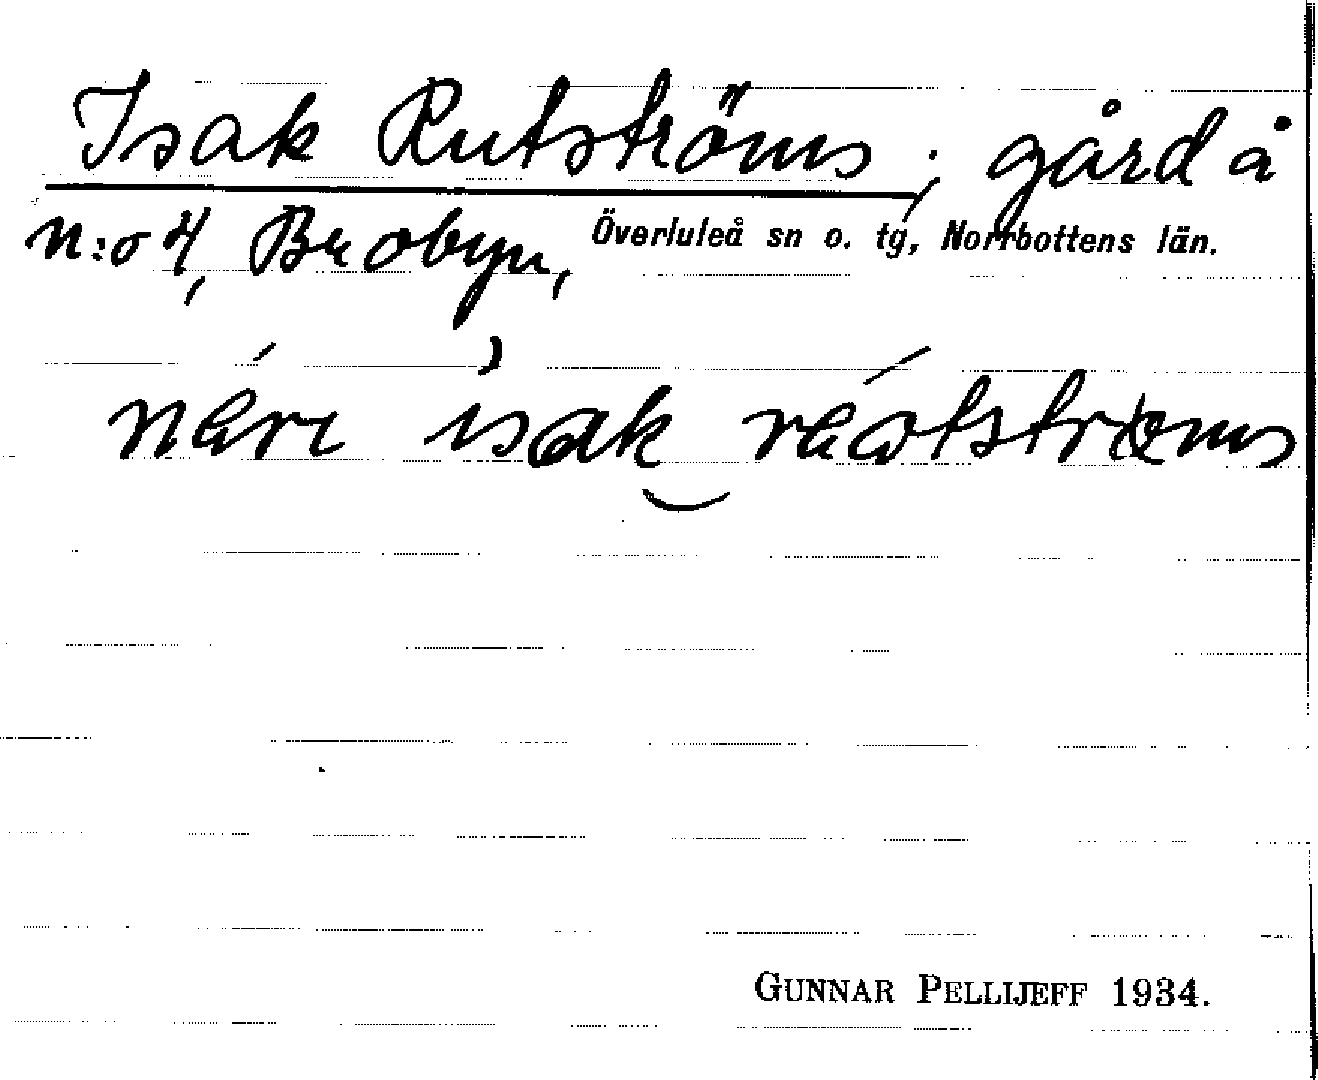 Isak Rutströms; gård å
n:o 4, Brobyn, Överluleå sn o. tg, Norrbottens län.
isak
GUNNAR PELLIJEFF 1934.